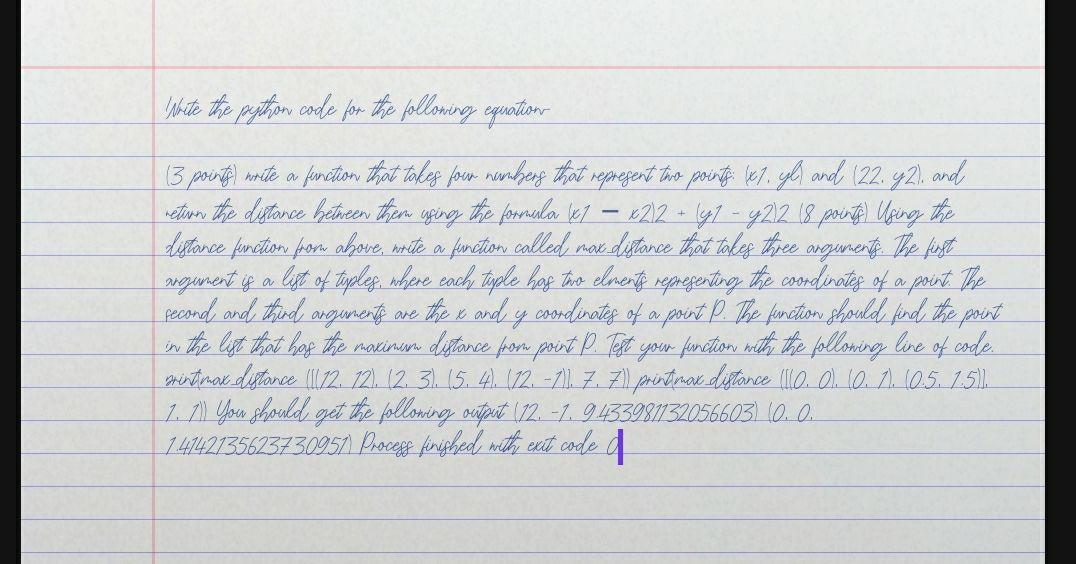 Write the python code for the following equation-
(3 points) write a function that takes four numbers that represent two points: (x1, yl) and (22, y2), and
return the distance between them using the formula (x1 – x2)2 + (y1 - y2)2 (8 points) Using the
distance function from above, write a function called max_distance that takes three arguments. The first
argument is a list of tuples, where each tuple has two elments representing the coordinates of a point. The
second and third arguments are the x and y coordinates of a point P. The function should find the point
in the list that has the maximum distance from point P. Test your function with the following line of code.
print(max_distance ([(12, 12), (2, 3), (5, 4), (12, -1)], 7, 7)) print(max_distance ([(0, 0), (0, 1), (0.5, 1.5)],
1, 1)) You should get the following output (12, -1, 9.433981132056603) (0, 0,
1.4142135623730951) Process finished with exit code 0